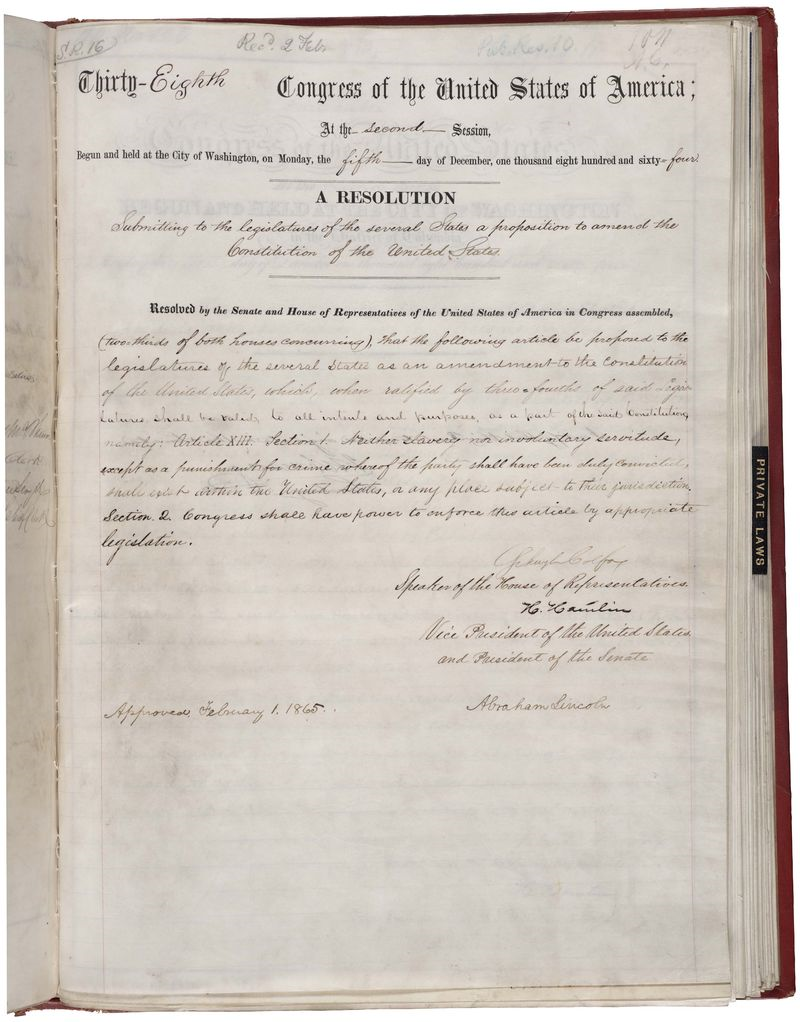 S.R. 16
Rec'd. 2 Feb.
Pub. Res. 10.
Thirty-Eighth Congress of the United States of America;
At the second Session,
Begun and held at the City of Washington, on Monday, the fifth day of December, one thousand eight hundred and sixty-four.
A RESOLUTION
Submitting to the legislatures of the several States a proposition to amend the
Constitution of the United States.
Resolved by the Senate and House of Representatives of the United States of America in Congress assembled,
(two-thirds of both houses concurring), That the following article be proposed to the
legislatures of the several States as an amendment to the Constitution
of the United States, which, when ratified by three-fourths of said Legis-
latures shall be valid, to all intents and purposes, as a part of the said Constitution,
namely: Article XIII. Section 1. Neither slavery nor involuntary servitude,
except as a punishment for crime whereof the party shall have been duly convicted,
shall exist within the United States, or any place subject to their jurisdiction.
Section. 2. Congress shall have power to enforce this article by appropriate
legislation.
Schuyler Colfax
Speaker of the House of Representatives.
H. Hamlin
Vice President of the United States,
and President of the Senate
Approved, February 1. 1865.
Abraham Lincoln
PRIVATE LAWS